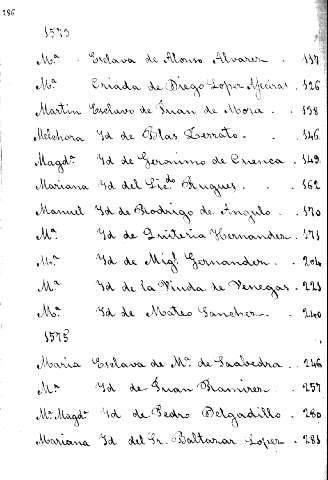 186
1573
M.ª Esclava de Alonso Alvarez . . 117
M.ª Criada de Diego Lopez 126
Martin Esclavo de Juan de Mora . . 138
Melchora Id de Blas Serrato . . 146
Magd.ª Id de Geronimo de Cuenca . 149
Mariana Id del Lic.do Brugues . . 162
Manuel Id de Rodrigo de Angulo . . 170
M.ª Id de Quiteria Hernandez . 171
M.ª Id de Mig.l Gernandez . . 204
M.ª Id de la Viuda de Venegas . 221
M.ª Id de Mateo Sanchez . . 240
1575
Maria Esclava de M.ª de Saabedra . . 246
M.ª Id de Juan Ramirez . . 257
M.ª Magd.ª Id de Pedro Delgadillo . 280
Mariana Id del Sr. Baltazar Lopez . 281